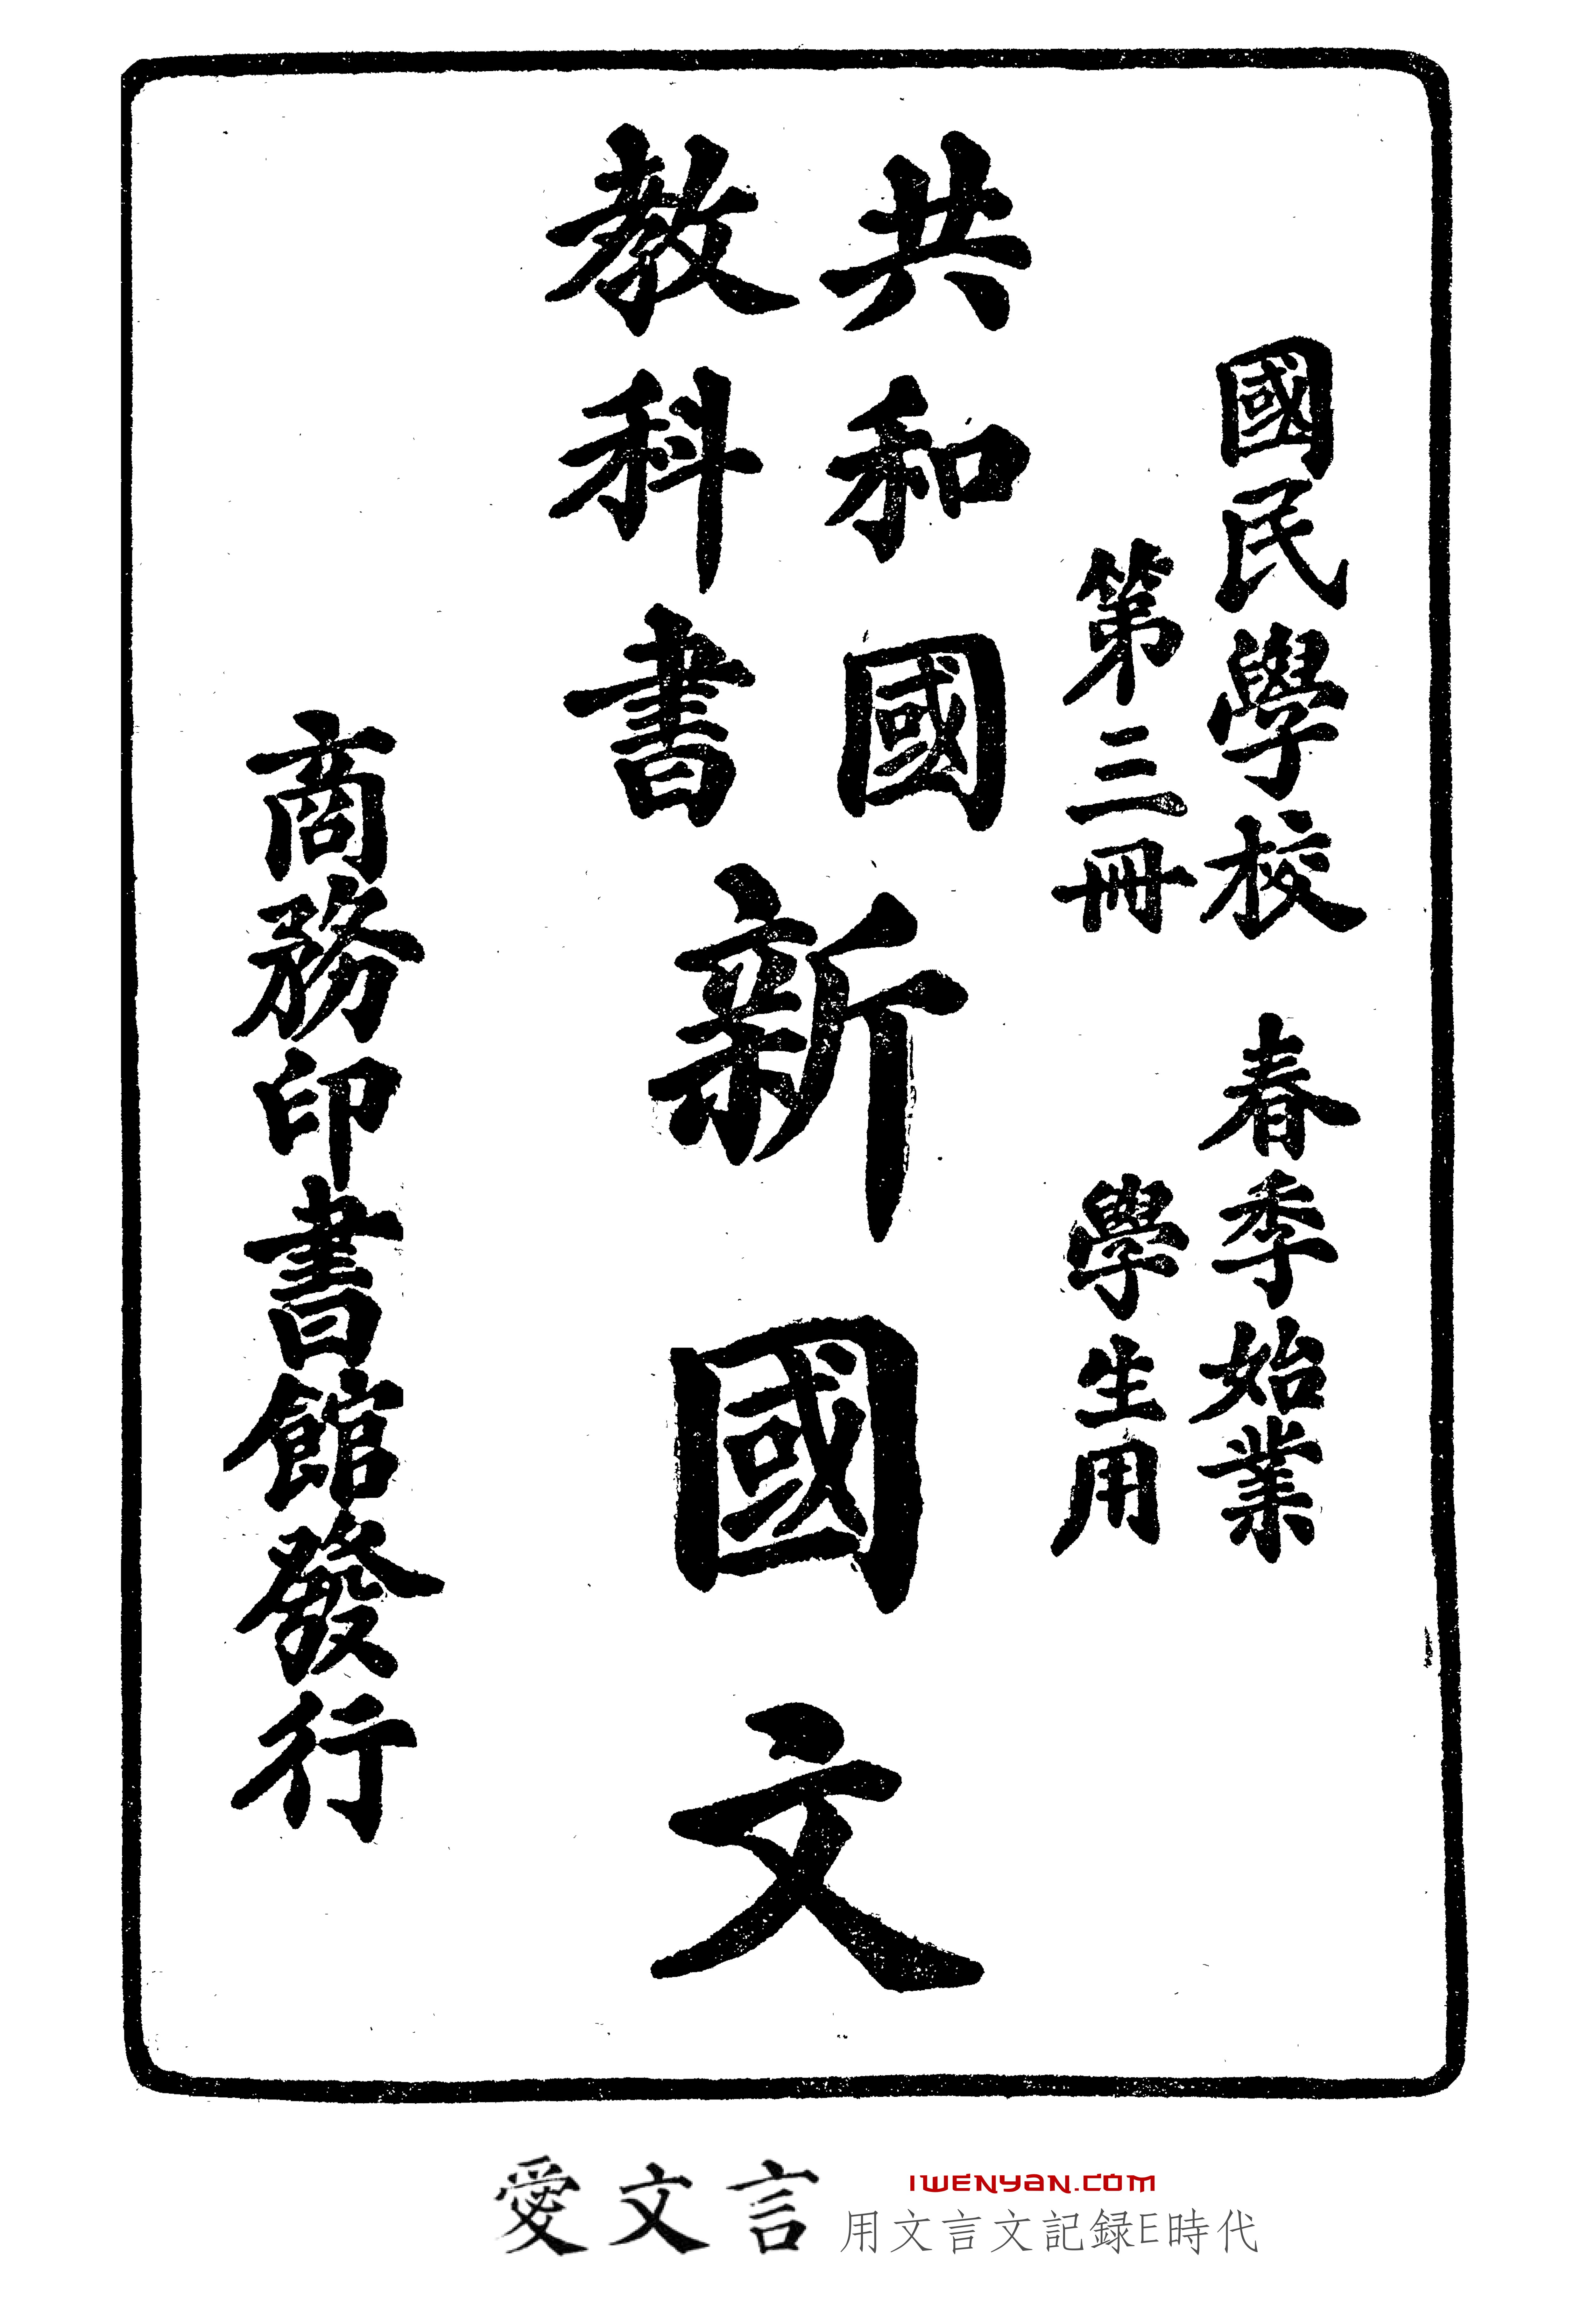 國民學校 春季始業
第三冊 學生用
共和國
教科書
新國文
商務印書館發行
愛文言
IWENYAN.COM
用文言文記録E時代